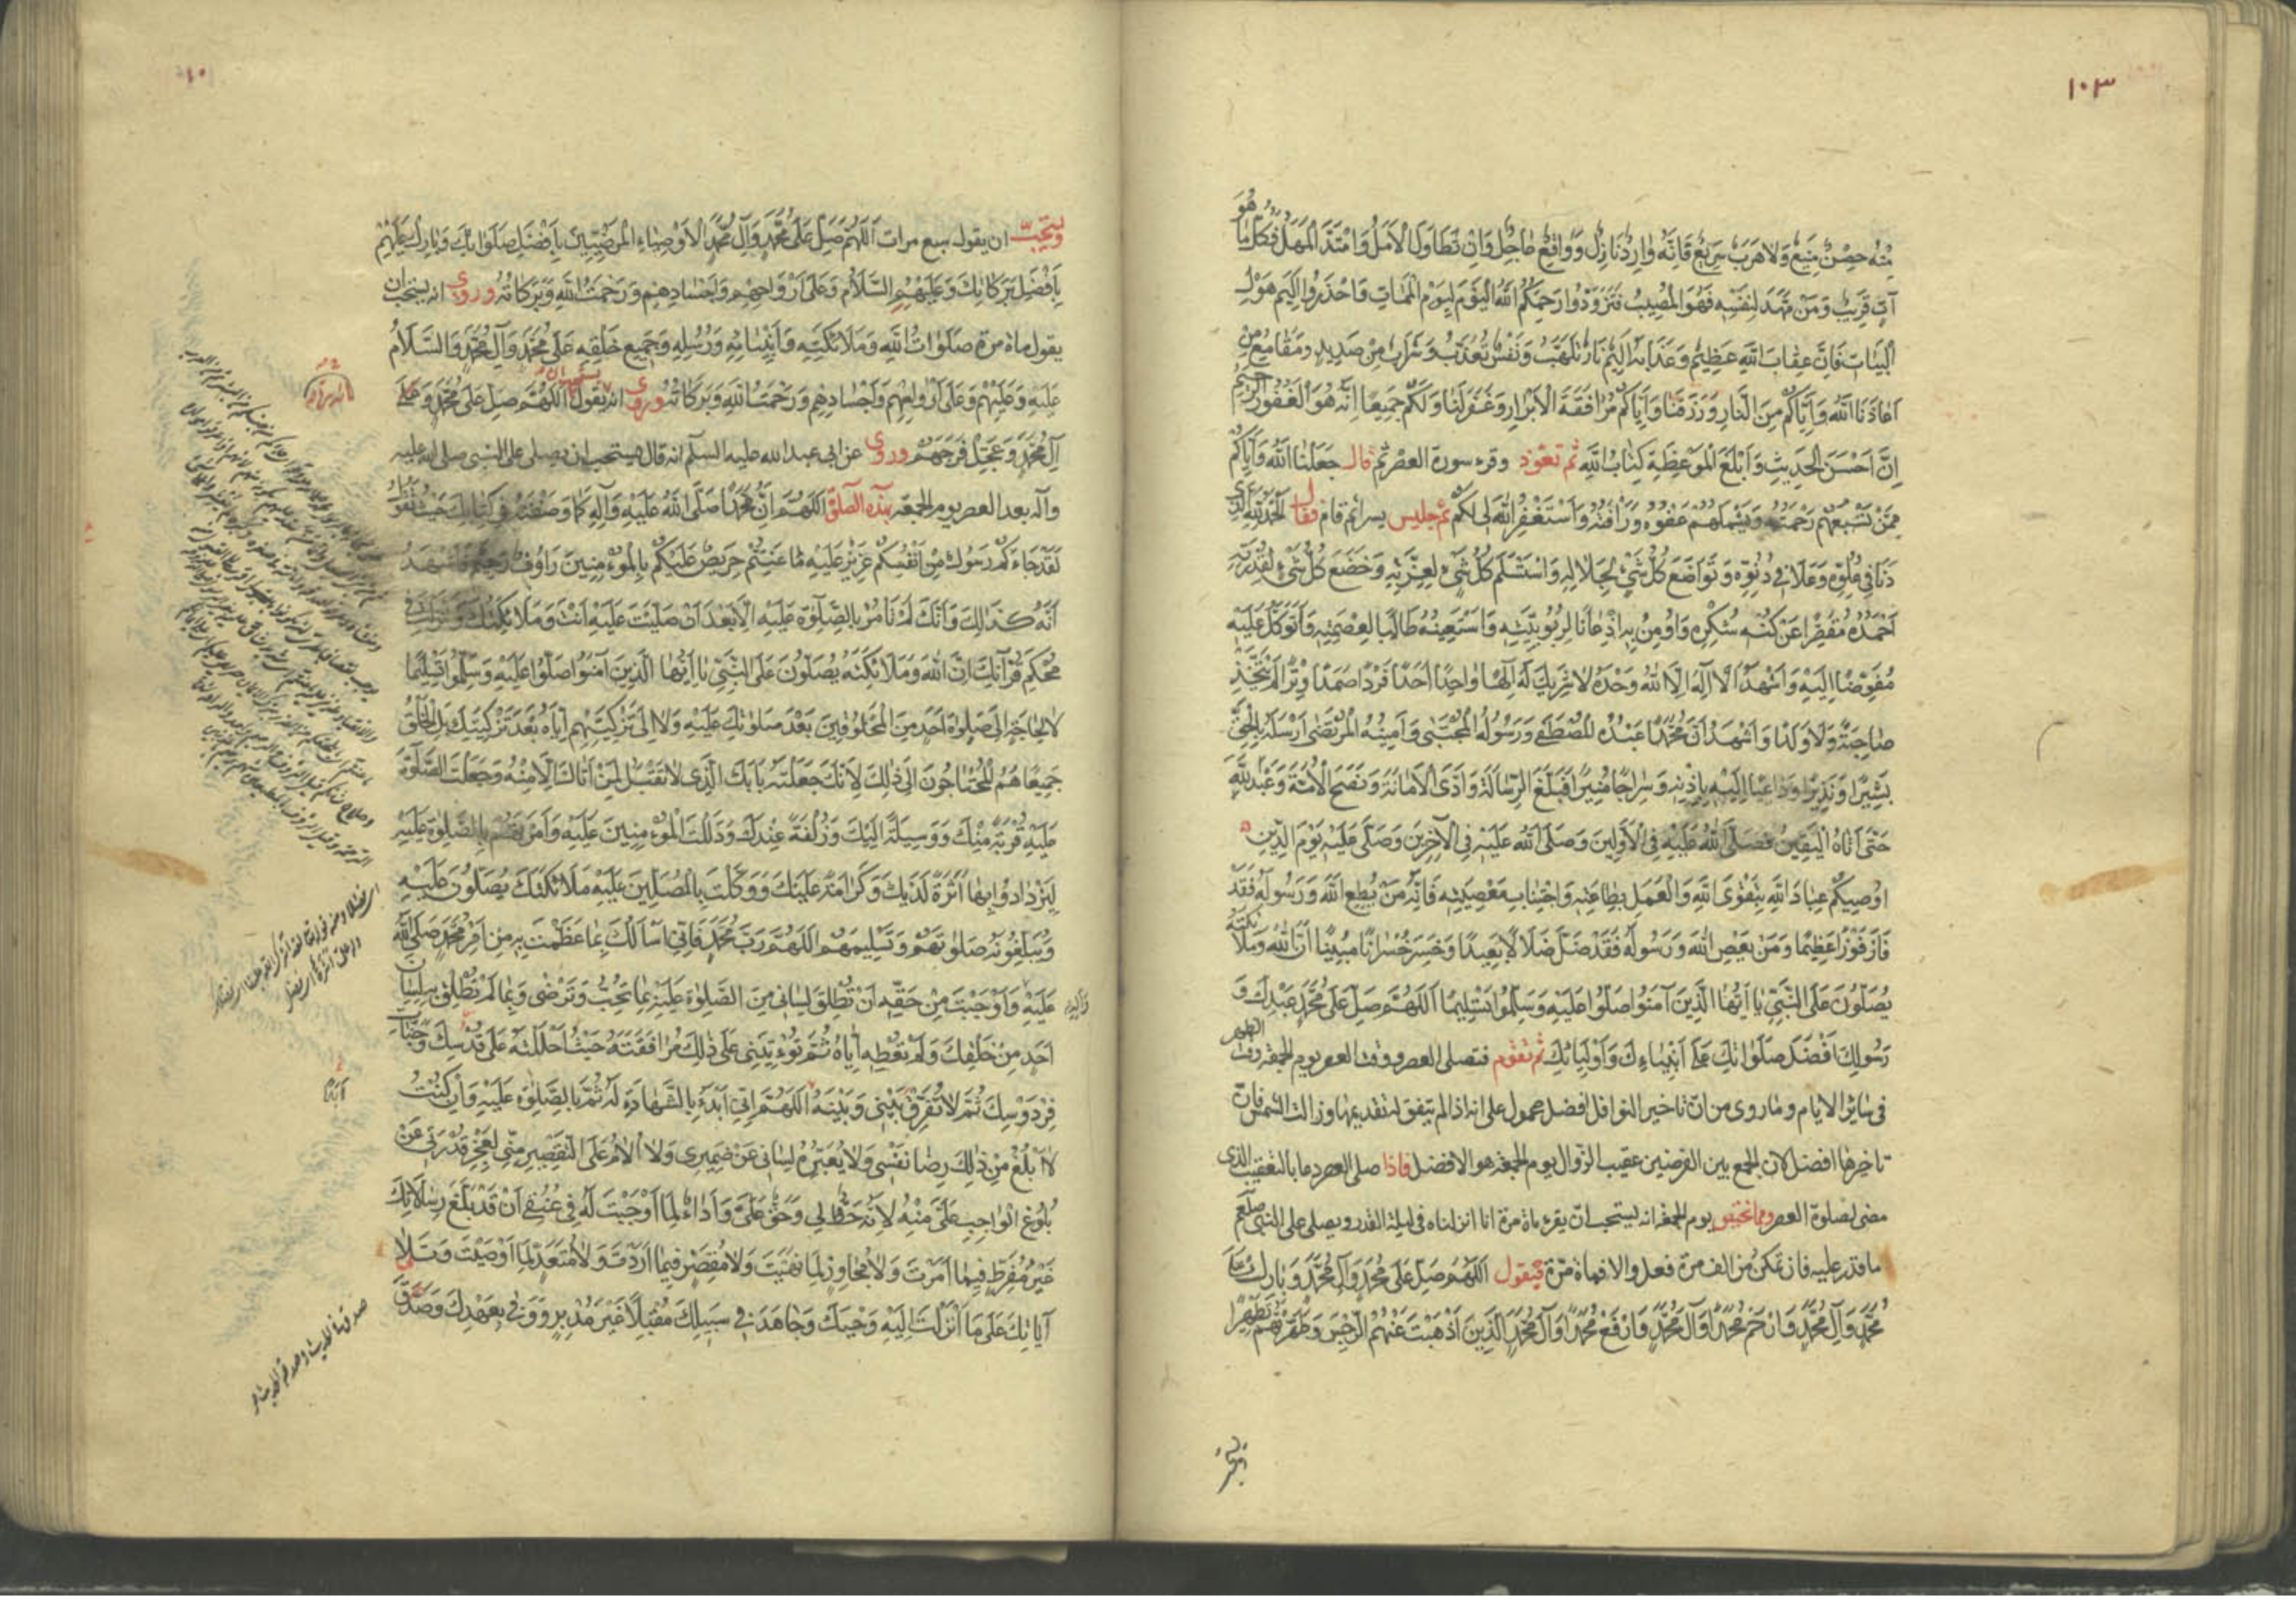 ١٠٣
منه حصن منيع ولا هرب سريع فانه وارد نازل وواقع عاجل وان تطاول الامل وامتد المهل فكل ما هو
آت قريب ومن مهد لنفسه فهو المصيب فتزودوا رحمكم الله اليوم ليوم الممات واحذروا اليم هول
البيات فان عقاب الله عظيم وعذابه اليم نار تلهب ونفس تعذب وشراب من صديد ومقامع من
اعاذنا الله واياكم من النار ورزقنا واياكم مرافقة الابرار وغفر لنا ولكم جميعا انه هو الغفور الرحيم
ان احسن الحديث وابلغ الموعظة كتاب الله ثم تعوذ وقرء سورة العصر ثم قال جعلنا الله واياكم
ممن تسعهم رحمته ويشملهم عفوه ورأفته واستغفر الله لي لكم ثم جلس يسيرا ثم قام فقال الحمد لله الذي
دنا في علوه وعلا في دنوه وتواضع كل شيء لجلاله واستسلم كل شيء لعزته وخضع كل شيء لقدرته
احمده مقصرا عن كنه شكره واومن به اذعانا لربوبيته واستعينه طالبا لعصمته واتوكل عليه
مفوضا اليه واشهد ان لا اله الا الله وحده لا شريك له الها واحدا احدا فردا صمدا وترا لم يتخذ
صاحبة ولا ولدا واشهد ان محمدا عبده المصطفى ورسوله المجتبى وامينه المرتضى ارسله بالحق
بشيرا ونذيرا وداعيا اليه باذنه وسراجا منيرا فبلغ الرسالة وادى الامانة ونصح الامة وعبد الله
حتى اتاه اليقين فصلى الله عليه في الاولين وصلى الله عليه في الآخرين وصلى عليه يوم الدين
اوصيكم عباد الله بتقوى الله والعمل بطاعته واجتناب معصيته فانه من يطع الله ورسوله فقد
فاز فوزا عظيما ومن يعص الله ورسوله فقد ضل ضلالا بعيدا وخسر خسرانا مبينا ان الله وملائكته
يصلون على النبي يا ايها الذين آمنوا صلوا عليه وسلموا تسليما اللهم صل على محمد عبدك و
رسولك افضل صلواتك على انبياءك واوليائك ثم تقوم فتصلي العصر ووقت العصر يوم الجمعة وقت الظهر
في سائر الايام وما روي من ان تاخير النوافل افضل محمول على انه اذا لم يتفق له تقديمها وزالت الشمس فان
تاخيرها افضل كان الجمع بين الفرضين عقيب الزوال يوم الجمعة هو الافضل فاذا صلى العصر دعا بالتعقيب الذي
مضى لصلوة العصر ومما يختص يوم الجمعة انه يستحب ان يقرء ماة مرة انا انزلناه في ليلة القدر ويصلي على النبي صلعم
ما قدر عليه فان تمكن من الف مرة فعل والا فماة مرة فيقول اللهم صل على محمد وآل محمد وبارك على
محمد وآل محمد وارحم محمدا وآل محمد وارفع محمدا وآل محمد الذين اذهبت عنهم الرجس وطهرتهم تطهيرا
ويستحب ان يقول سبع مرات اللهم صل على محمد وآل محمد الاوصياء المرضيين بافضل صلواتك وبارك عليهم
بافضل بركاتك وعليهم السلام وعلى ارواحهم واجسادهم ورحمت الله وبركاته وروي انه يستحب ان
يقول ماة مرة صلوات الله وملائكته وانبيائه ورسله وجميع خلقه على محمد وآل محمد والسلام
عليه وعليهم وعلى ارواحهم واجسادهم ورحمت الله وبركاته وروي انه يستحب ان يقول اللهم صل على محمد وعلى
آل محمد وعجل فرجهم وروي عن ابي عبد الله عليه السلم انه قال يستحب ان يصلى على النبي صلى الله عليه
وآله بعد العصر يوم الجمعة بهذه الصلوة اللهم ان محمدا صلى الله عليه وآله كما وصفته في كتابك حيث تقول
لقد جاءكم رسول من انفسكم عزيز عليه ما عنتم حريص عليكم بالمؤمنين رؤف رحيم فاشهد
انه كذلك وانك لم تأمر بالصلوة عليه الا بعد ان صليت عليه انت وملائكتك وانزلت في
محكم قرآنك ان الله وملائكته يصلون على النبي يا ايها الذين آمنوا صلوا عليه وسلموا تسليما
لا لحاجة الى صلوة احد من المخلوقين بعد صلوتك عليه ولا الى تزكيتهم اياه بعد تزكيتك بل الخلق
جميعا هم المحتاجون الى ذلك لانك جعلته بابك الذي لا تقبل لمن اتاك الا منه وجعلت الصلوة
عليه قربة منك ووسيلة اليك وزلفة عندك ودللت المؤمنين عليه وامرتهم بالصلوة عليه
ليزدادوا بها اثرة لديك وكرامة عليك ووكلت بالمصلين عليه ملائكتك يصلون عليه
ويبلغونه صلوتهم وتسليمهم اللهم رب محمد فاني اسالك بما عظمت به من امر محمد صلى الله
عليه واوجبت من حقه ان تطلق لساني من الصلوة عليه بما تحب وترضى وبما لم تطلق به لسان
احد من خلقك ولم تعطه اياه ثم تؤتيني على ذلك مرافقته حيث احللته على قدسك وجنات
فردوسك ثم لا تفرق بيني وبينه اللهم اني ابدء بالشهادة له ثم بالصلوة عليه وان كنت
لا ابلغ من ذلك رضا نفسي ولا يعبره لساني عن ضميري ولا الام على التقصير مني لعجز قدرتي عن
بلوغ الواجب علي منه لانه حظ لي وحق علي واداء لما اوجبت له في عنقي ان قد بلغ رسالاتك
غير مفرط فيما امرت ولا مجاوز لما نهيت ولا مقصر فيما اردت ولا متعد لما اوصيت وتلا
آياتك على ما انزلت اليه وحيك وجاهد في سبيلك مقبلا غير مدبر ووفى بعهدك وصدق